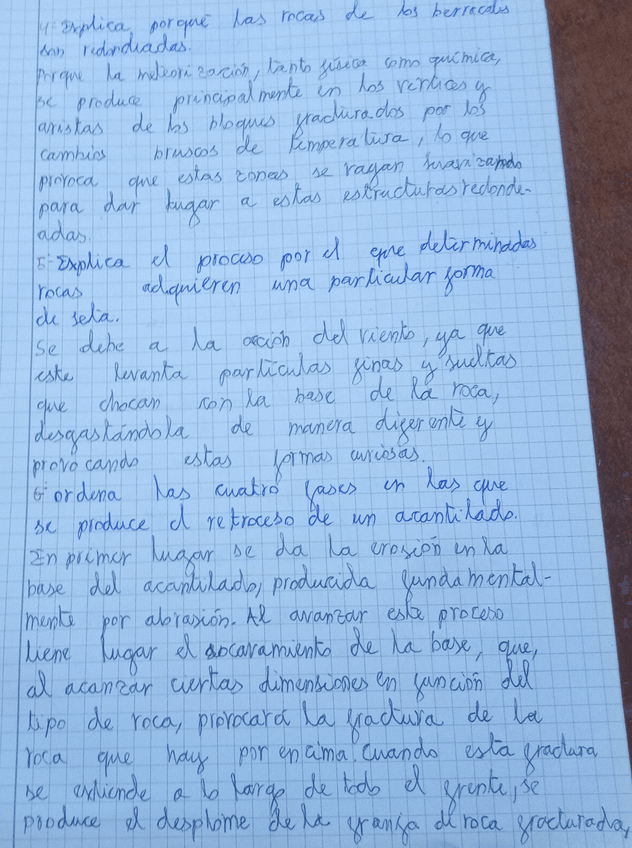 4- Explica porque las rocas de los berrocales
son redondeadas.
Porque la meteorización, tanto física como química,
se produce principalmente en los vértices y
aristas de los bloques fracturados por los
cambios bruscos de temperatura, lo que
provoca que estas zonas se vayan suavizando
para dar lugar a estas estructuras redonde-
adas.
5- Explica el proceso por el que determinadas
rocas adquieren una particular forma
de seta.
Se debe a la acción del viento, ya que
este levanta partículas finas y sueltas
que chocan con la base de la roca,
desgastándola de manera diferente y
provocando estas formas curiosas.
6- ordena las cuatro fases en las que
se produce el retroceso de un acantilado.
En primer lugar se da la erosión en la
base del acantilado, producida fundamental-
mente por abrasión. Al avanzar este proceso
tiene lugar el socavamiento de la base, que,
al acanzar ciertas dimensiones en función del
tipo de roca, provocará la fractura de la
roca que hay por encima. Cuando esta fractura
se extiende a lo largo de todo el frente, se
produce el desplome de la franja de roca fracturada,